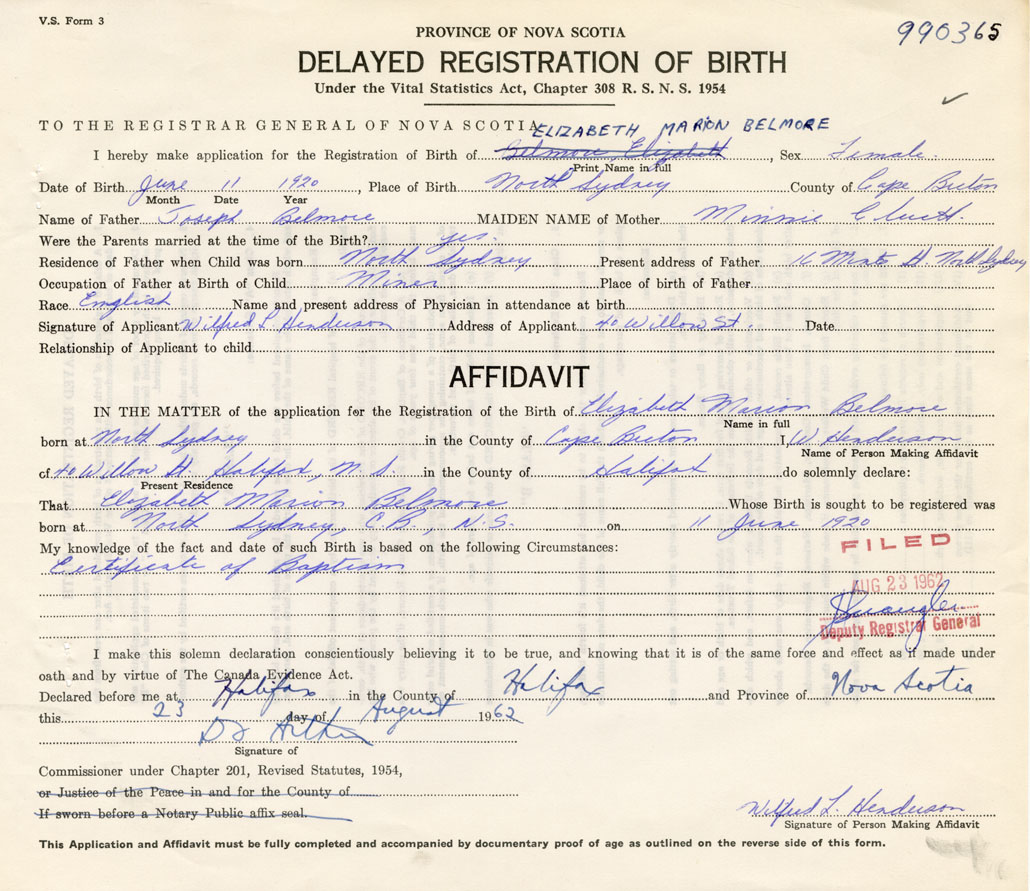 V.S. Form 3
990365
PROVINCE OF NOVA SCOTIA
DELAYED REGISTRATION OF BIRTH
Under the Vital Statistics Act, Chapter 308 R. S. N. S. 1954
TO THE REGISTRAR GENERAL OF NOVA SCOTIA
ELIZABETH MARION BELMORE
I hereby make application for the Registration of Birth of Belmore, Elizabeth, Sex Female.
Print Name in full
Date of Birth June 11 1920, Place of Birth North Sydney County of Cape Breton
Month Date Year
Name of Father Joseph Belmore MAIDEN NAME of Mother Minnie
Were the Parents married at the time of the Birth? yes.
Residence of Father when Child was born North Sydney Present address of Father 16 St. North Sydney
Occupation of Father at Birth of Child Miner Place of birth of Father
Race English Name and present address of Physician in attendance at birth
Signature of Applicant Wilfred L. Henderson Address of Applicant 40 Willow St. Date
Relationship of Applicant to child
AFFIDAVIT
IN THE MATTER of the application for the Registration of the Birth of Elizabeth Marion Belmore
Name in full
born at North Sydney in the County of Cape Breton I, W Henderson
Name of Person Making Affidavit
of 40 Willow St. Halifax, N.S. in the County of Halifax do solemnly declare:
Present Residence
That Elizabeth Marion Belmore Whose Birth is sought to be registered was
born at North Sydney, C.B., N.S. on 11 June 1920
My knowledge of the fact and date of such Birth is based on the following Circumstances:
Certificate of Baptism
FILED
AUG 23 1962
Deputy Registrar General
I make this solemn declaration conscientiously believing it to be true, and knowing that it is of the same force and effect as if made under
oath and by virtue of The Canada Evidence Act.
Declared before me at Halifax in the County of Halifax and Province of Nova Scotia
this 23 day of August 1962
Signature of
Commissioner under Chapter 201, Revised Statutes, 1954,
or Justice of the Peace in and for the County of
If sworn before a Notary Public affix seal.
Wilfred L. Henderson
Signature of Person Making Affidavit
This Application and Affidavit must be fully completed and accompanied by documentary proof of age as outlined on the reverse side of this form.